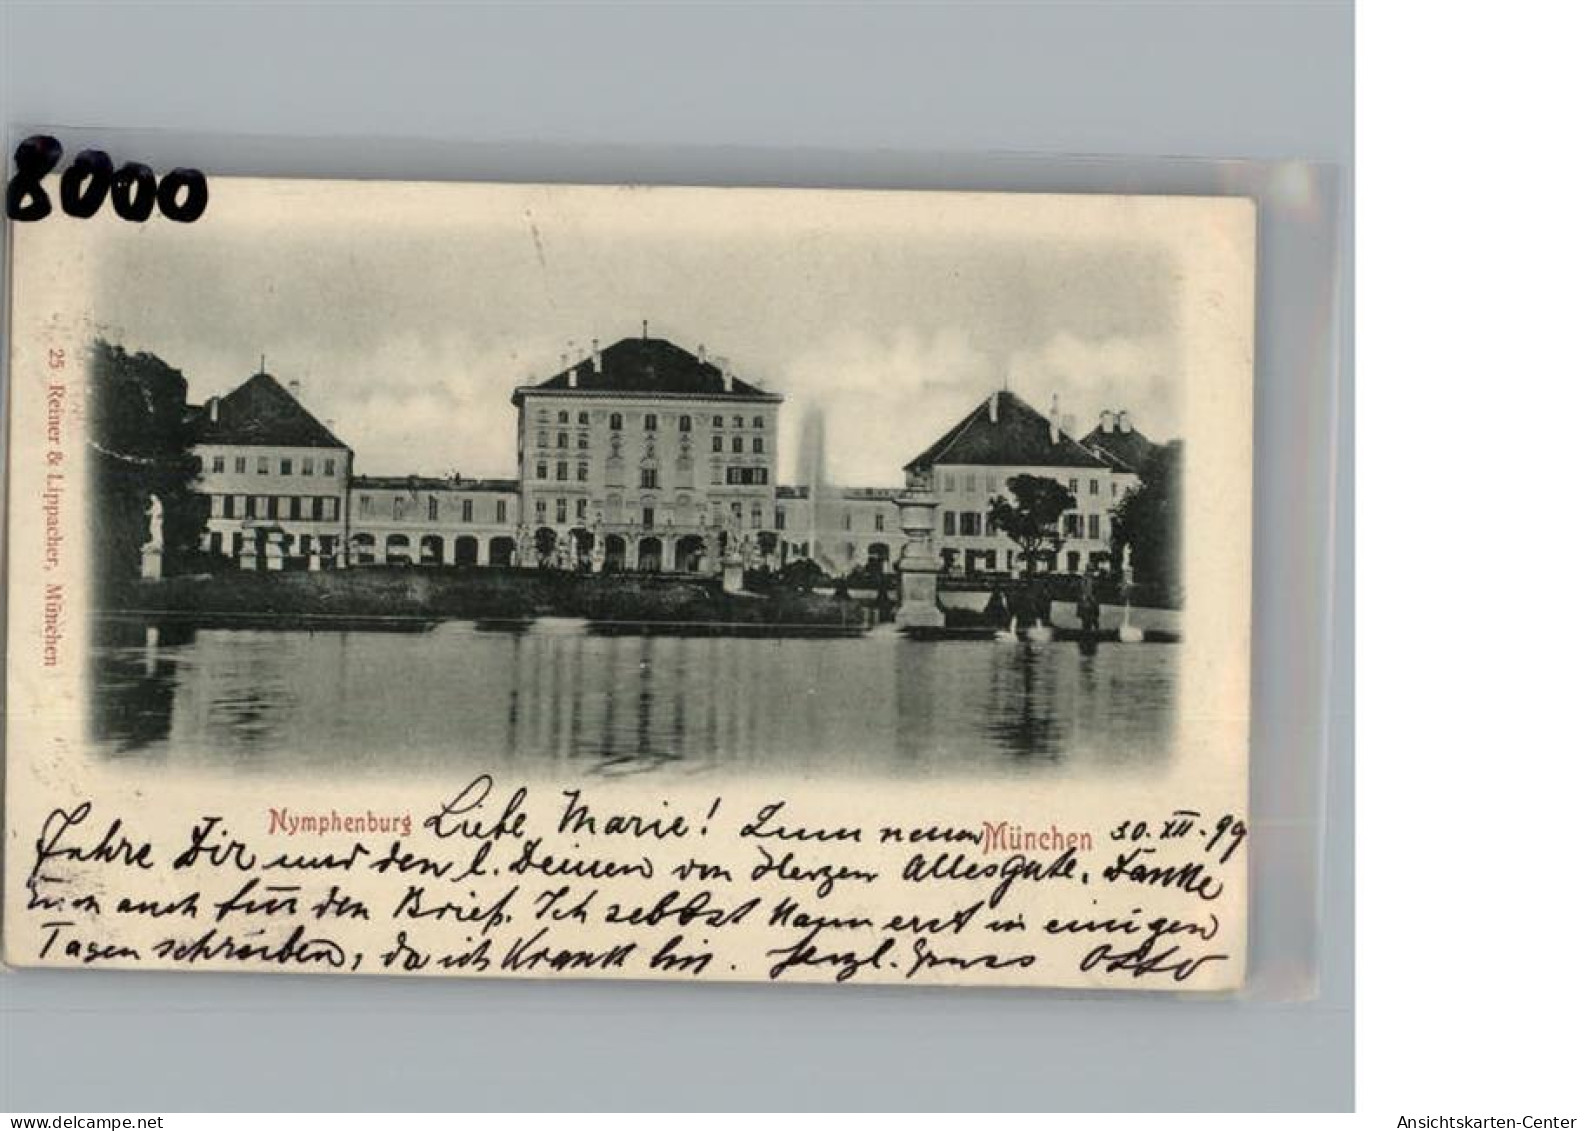 8000
25 Reiner & Lippacher, München
Nymphenburg Liebe Marie! Zum neuen München 30. XII. 99
Jahre Dir und den l. Deinen von Herzen Alles gute. Danke
Dir auch für den Brief. Ich selbst kann erst in einigen
Tagen schreiben, da ich krank bin. Herzl. Gruss Otto
delcampe.net
Ansichtskarten-Center